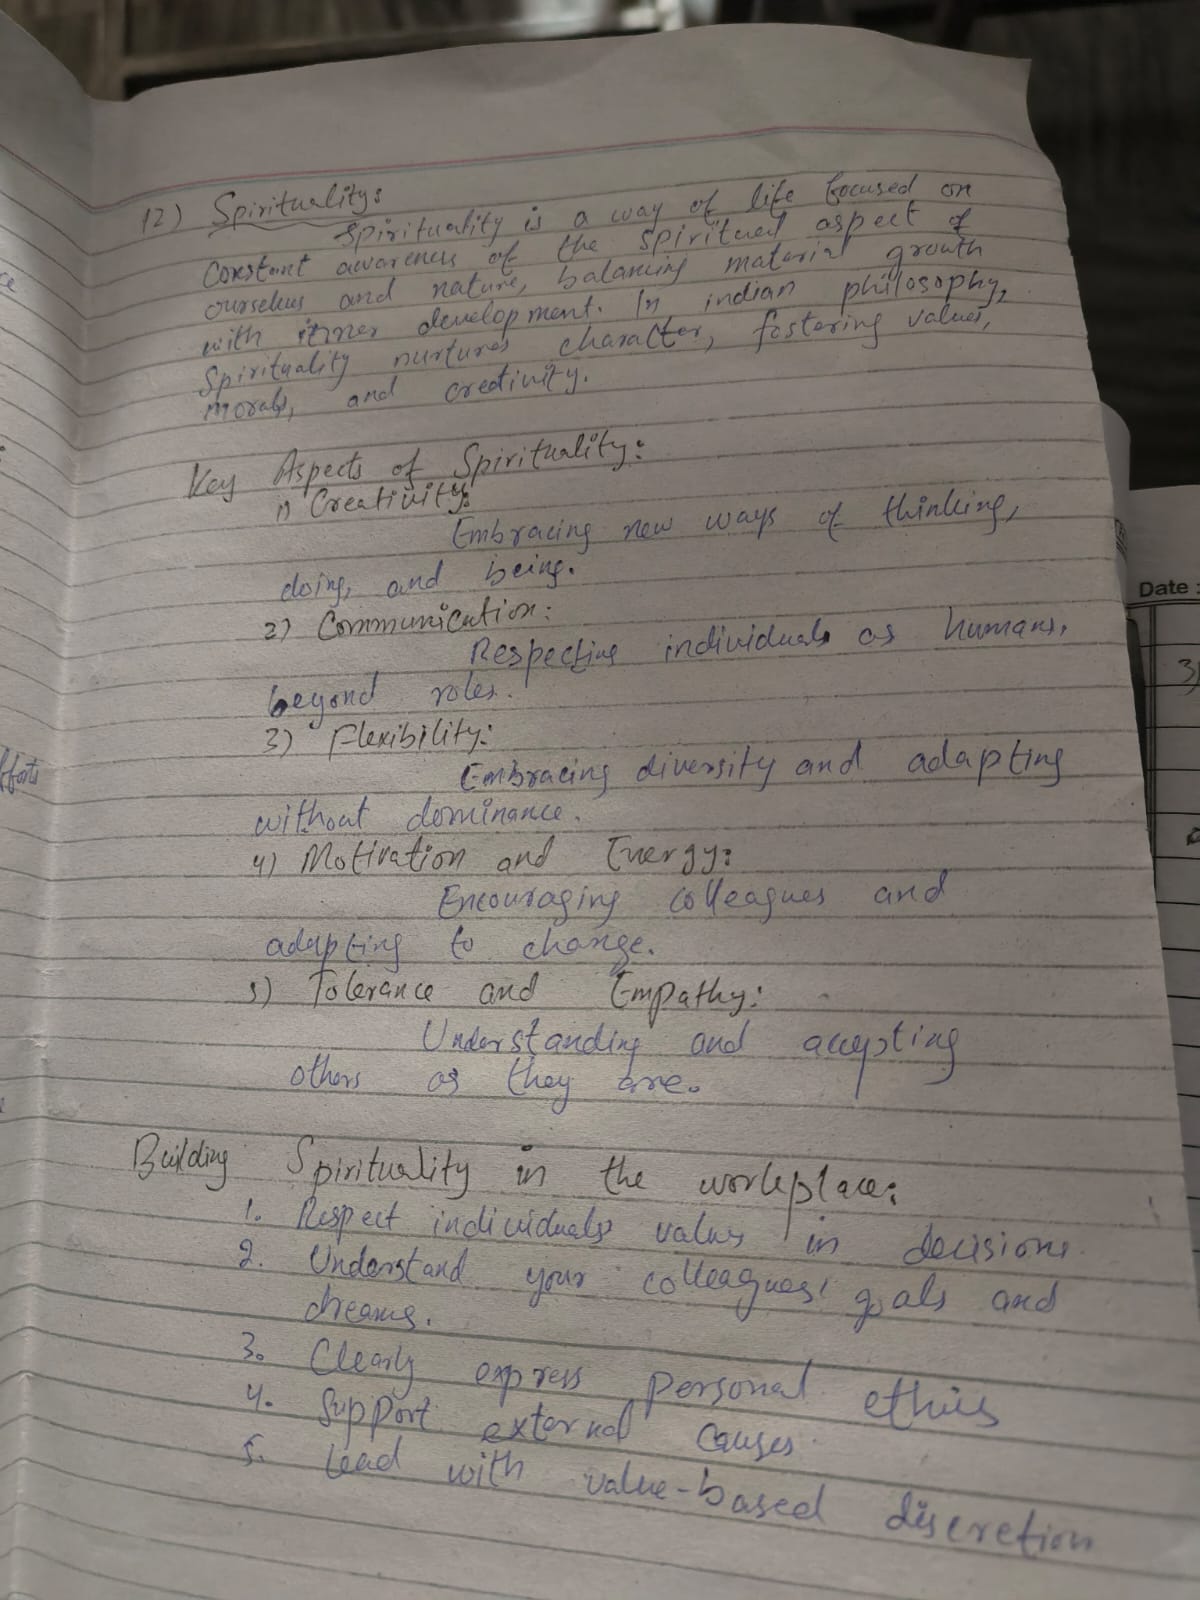 12) Spirituality:
Spirituality is a way of life focused on
constant awareness of the spiritual aspect of
ourselves and nature, balancing material growth
with inner development. In indian philosophy,
Spirituality nurtures character, fostering values,
morals, and creativity.
Key Aspects of Spirituality:
1) Creativity:
Embracing new ways of thinking,
doing, and being.
2) Communication:
Respecting individuals as humans,
beyond roles.
3) Flexibility:
Embracing diversity and adapting
without dominance.
4) Motivation and Energy:
Encouraging colleagues and
adapting to change.
5) Tolerance and Empathy:
Understanding and accepting
others as they are.
Building Spirituality in the workplace:
1. Respect individuals values in decisions.
2. Understand your colleagues' goals and
dreams.
3. Clearly express personal ethics
4. Support external causes.
5. Lead with value-based discretion
Date :
3)